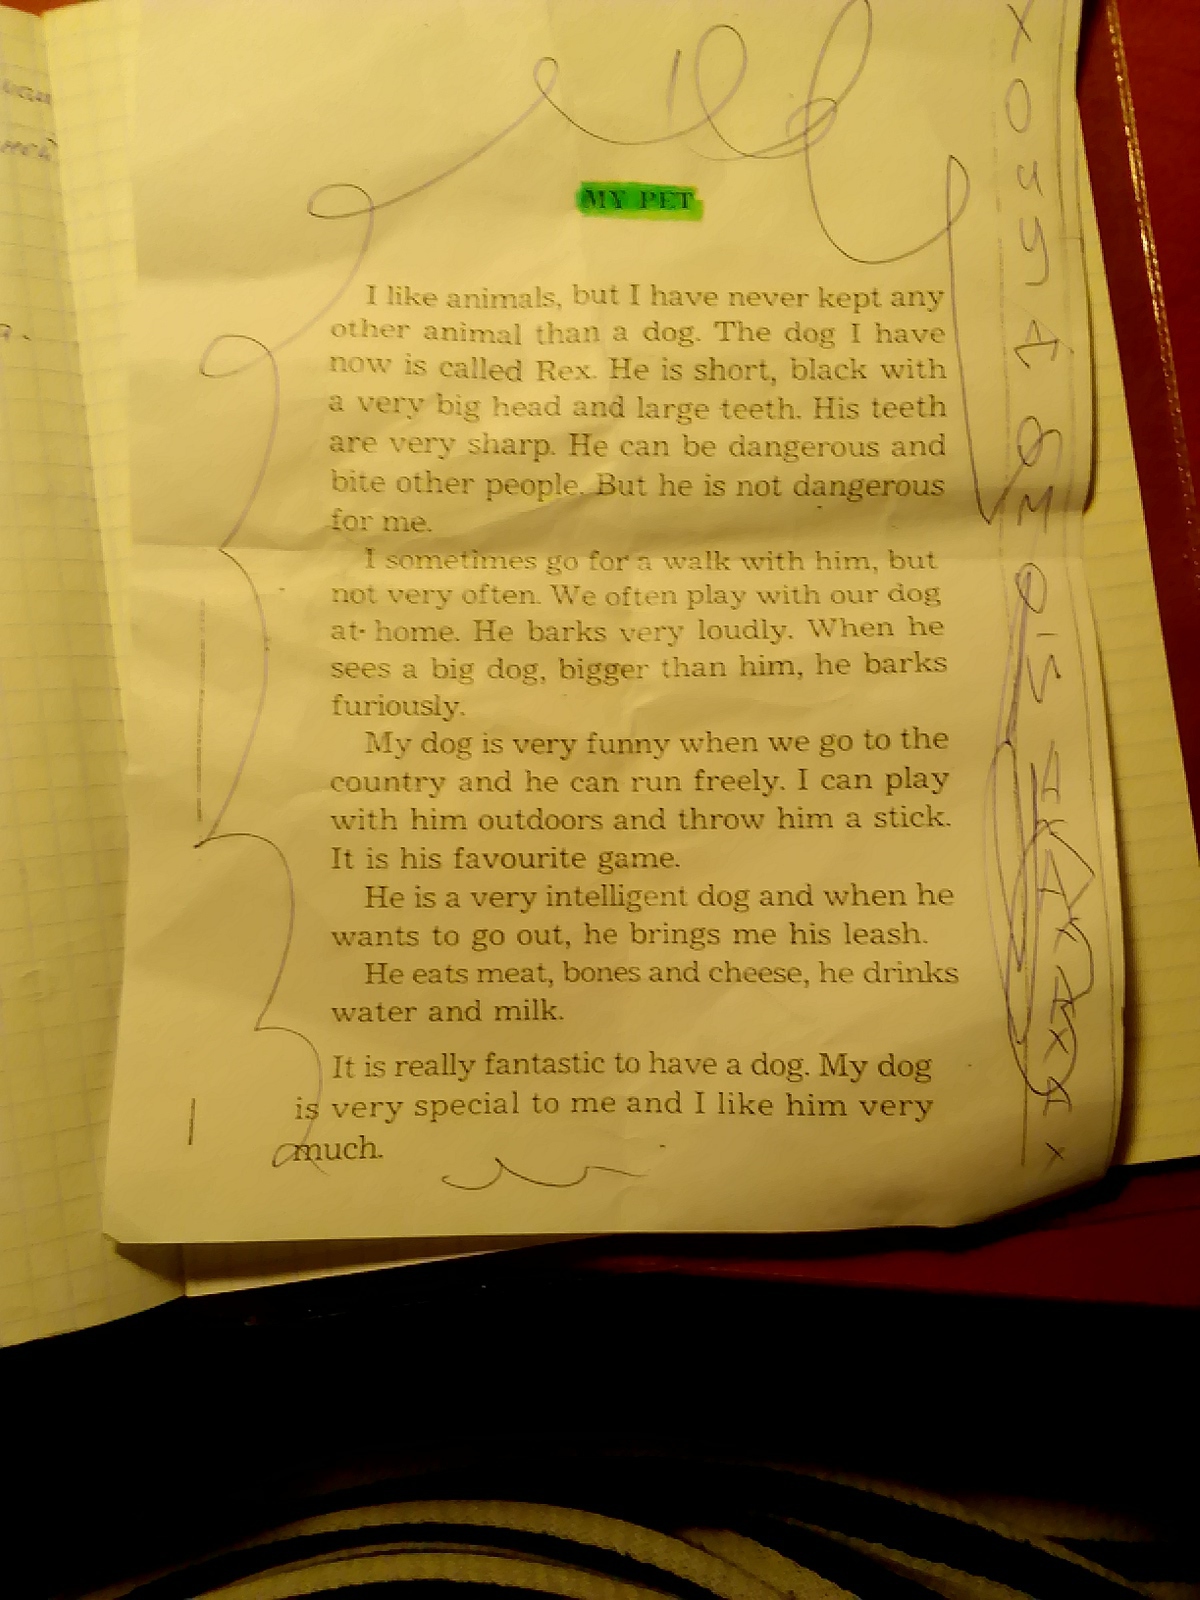 MY PET
I like animals, but I have never kept any
other animal than a dog. The dog I have
now is called Rex. He is short, black with
a very big head and large teeth. His teeth
are very sharp. He can be dangerous and
bite other people. But he is not dangerous
for me.
I sometimes go for a walk with him, but
not very often. We often play with our dog
at home. He barks very loudly. When he
sees a big dog, bigger than him, he barks
furiously.
My dog is very funny when we go to the
country and he can run freely. I can play
with him outdoors and throw him a stick.
It is his favourite game.
He is a very intelligent dog and when he
wants to go out, he brings me his leash.
He eats meat, bones and cheese, he drinks
water and milk.
It is really fantastic to have a dog. My dog
is very special to me and I like him very
much.